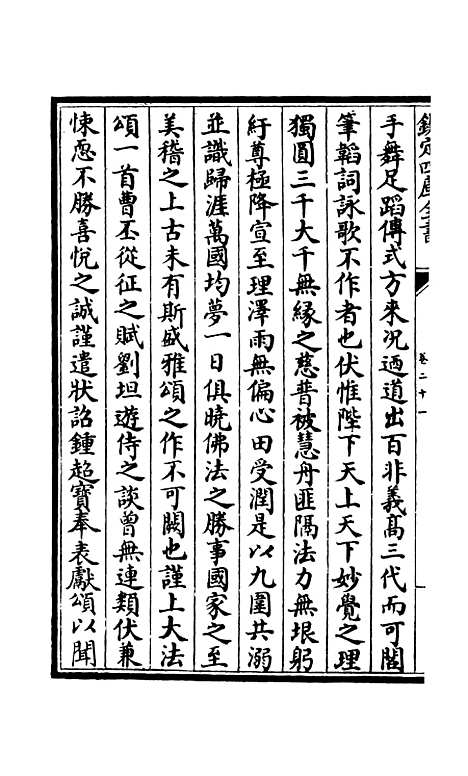 欽定四庫全書
卷二十一
手舞足蹈傳式方來况迺道出百非義髙三代而可閣
筆韜詞詠歌不作者也伏惟陛下天上天下妙覺之理
獨圓三千大千無縁之慈普被慧舟匪隔法力無垠躬
紆尊極降宣至理澤雨無偏心田受潤是以九圍共溺
並識歸涯萬國均夢一日俱曉佛法之勝事國家之至
美稽之上古未有斯盛雅頌之作不可闕也謹上大法
頌一首曹丕從征之賦劉坦遊侍之談曽無連類伏兼
悚恧不勝喜悅之誠謹遣狀詔鍾超寳奉表獻頌以聞